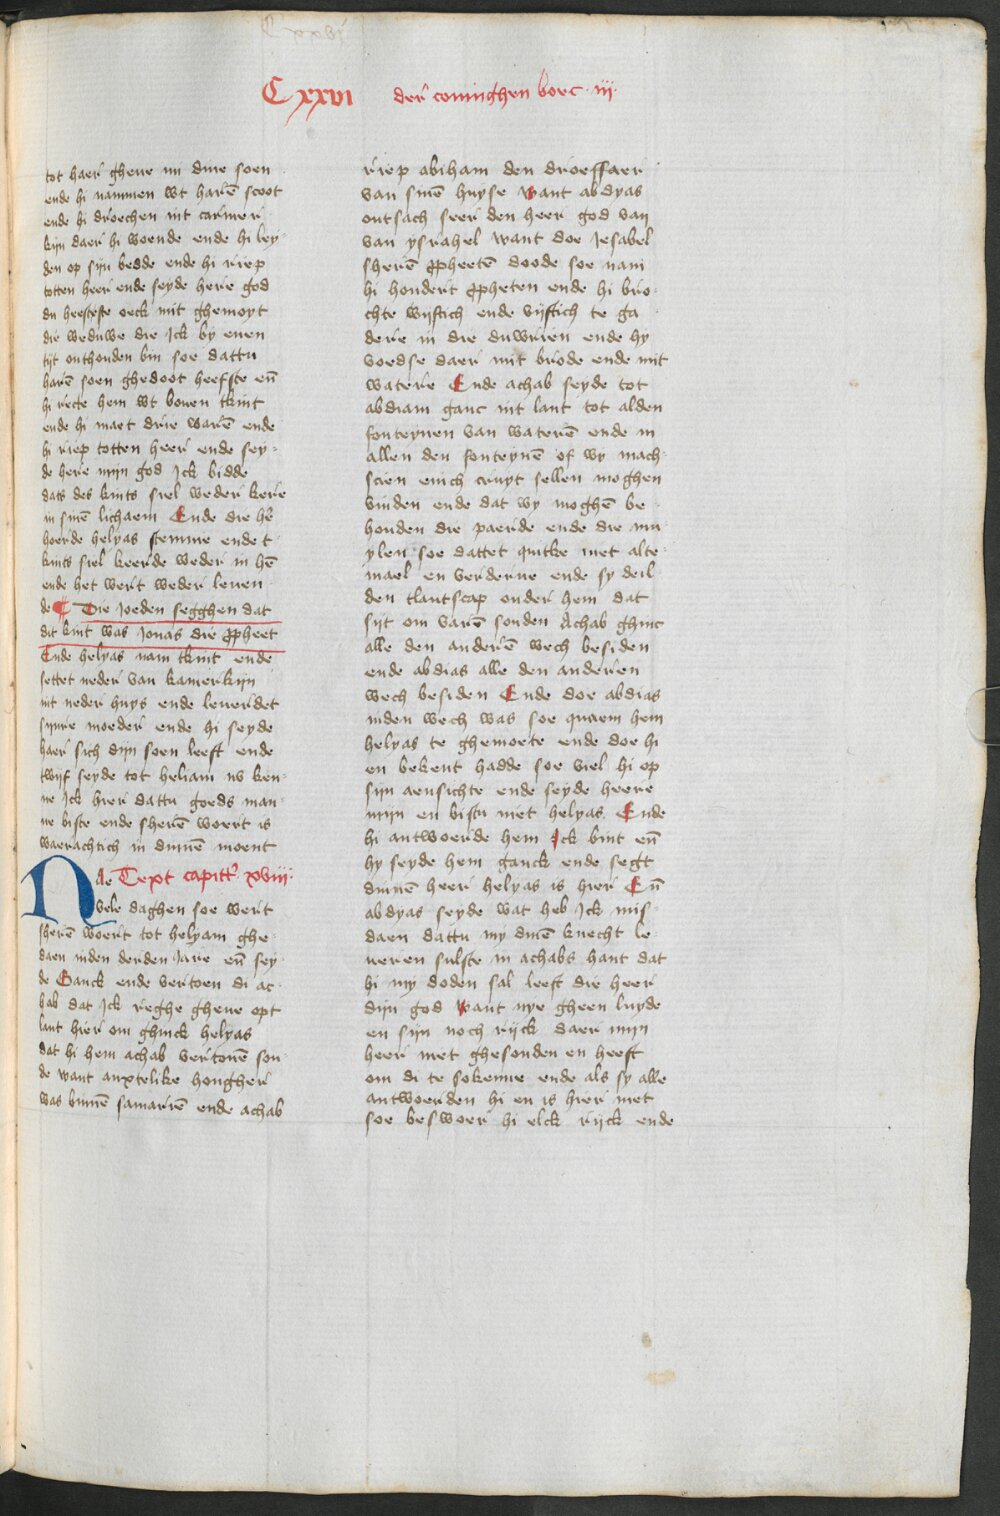 Cxxvi
Cxxvi der coninghen boec iij
tot haer gheue mi dine soen
ende hi nammen wt harē scoot
ende hi droechen int camer
kijn daer hi woende ende hi ley
den op sijn bedde ende hi riep
totten heer ende seyde here god
du heefste oeck mit ghemoyt
die weduwe die Ick by enen
tijt onthouden bin soe dattu
harē soen ghedoot heefste eñ
hi recte hem wt bouen tkint
ende hi maet drie warē ende
hi riep totten heer ende sey
de here mijn god Ick bidde
dats des kints siel weder kere
in sinē lichaem Ende die hē
hoerde helyas stemme ende t
kints siel keerde weder in hē
ende het wert weder leuen
de ¶ Die Joeden segghen dat
dit kint was Jonas die ꝓpheet
Ende helyas nam tkint ende
settet neder van kamerkijn
int neder huys ende leuerdet
sijnre moeder ende hi seyde
haer sich dijn soen leeft ende
twijf seyde tot heliam nv ken
ne Ick hier dattu goeds man
ne biste ende sherē woert is
waerachtich in dinnē moent
Nae Text capitt' xviij
vele daghen soe wert
sherē woert tot helyam ghe
daen inden derden Jare eñ sey
de Ganck ende vertoen di ac
hab dat Ick reghe gheue opt
lant hier om ghinck helyas
dat hi hem achab vertonē sou
de want anxtelike hongher
was binnē samariē ende achab
riep abiham den droeffaer
van sinē huyse want abdyas
ontsach seer den heer god van
van ysrahel want doe Jesabel
sherē ꝓpheetē doode soe nam
hi hondert ꝓpheten ende hi bro
chte vijftich ende vijftich te ga
dere in die duwrien ende hy
voedse daer mit brode ende mit
watere Ende achab seyde tot
abdiam ganc int lant tot alden
fonteynen van waterē ende in
allen den fonteynē of wy mach
scien enich cruyt sellen moghen
vinden ende dat wy moghē be
houden die paerde ende die mu
ylen soe dattet quitke niet alte
mael en verderue ende sy deil
den tlantscap onder hem dat
sijt om varē souden Achab ghinc
alle den anderē wech besiden
ende abdias alle den anderen
wech besiden Ende doe abdias
inden wech was soe quaem hem
helyas te ghemoete ende doe hi
en bekent hadde soe viel hi op
sijn aensichte ende seyde heere
mijn en bistu niet helyas Ende
hi antwoerde hem Ick bint eñ
hy seyde hem ganck ende segt
dinnē heer helyas is hier Eñ
abdyas seyde wat heb Ick mis
daen dattu my dinē knecht le
ueren sulste in achabs hant dat
hi my doden sal leeft die heer
dijn god want nye gheen luyde
en sijn noch rijck daer mijn
heer niet ghesonden en heeft
om di te sokenne ende als sy alle
antwoerden hi en is hier niet
soe beswoer hi elck rijck ende